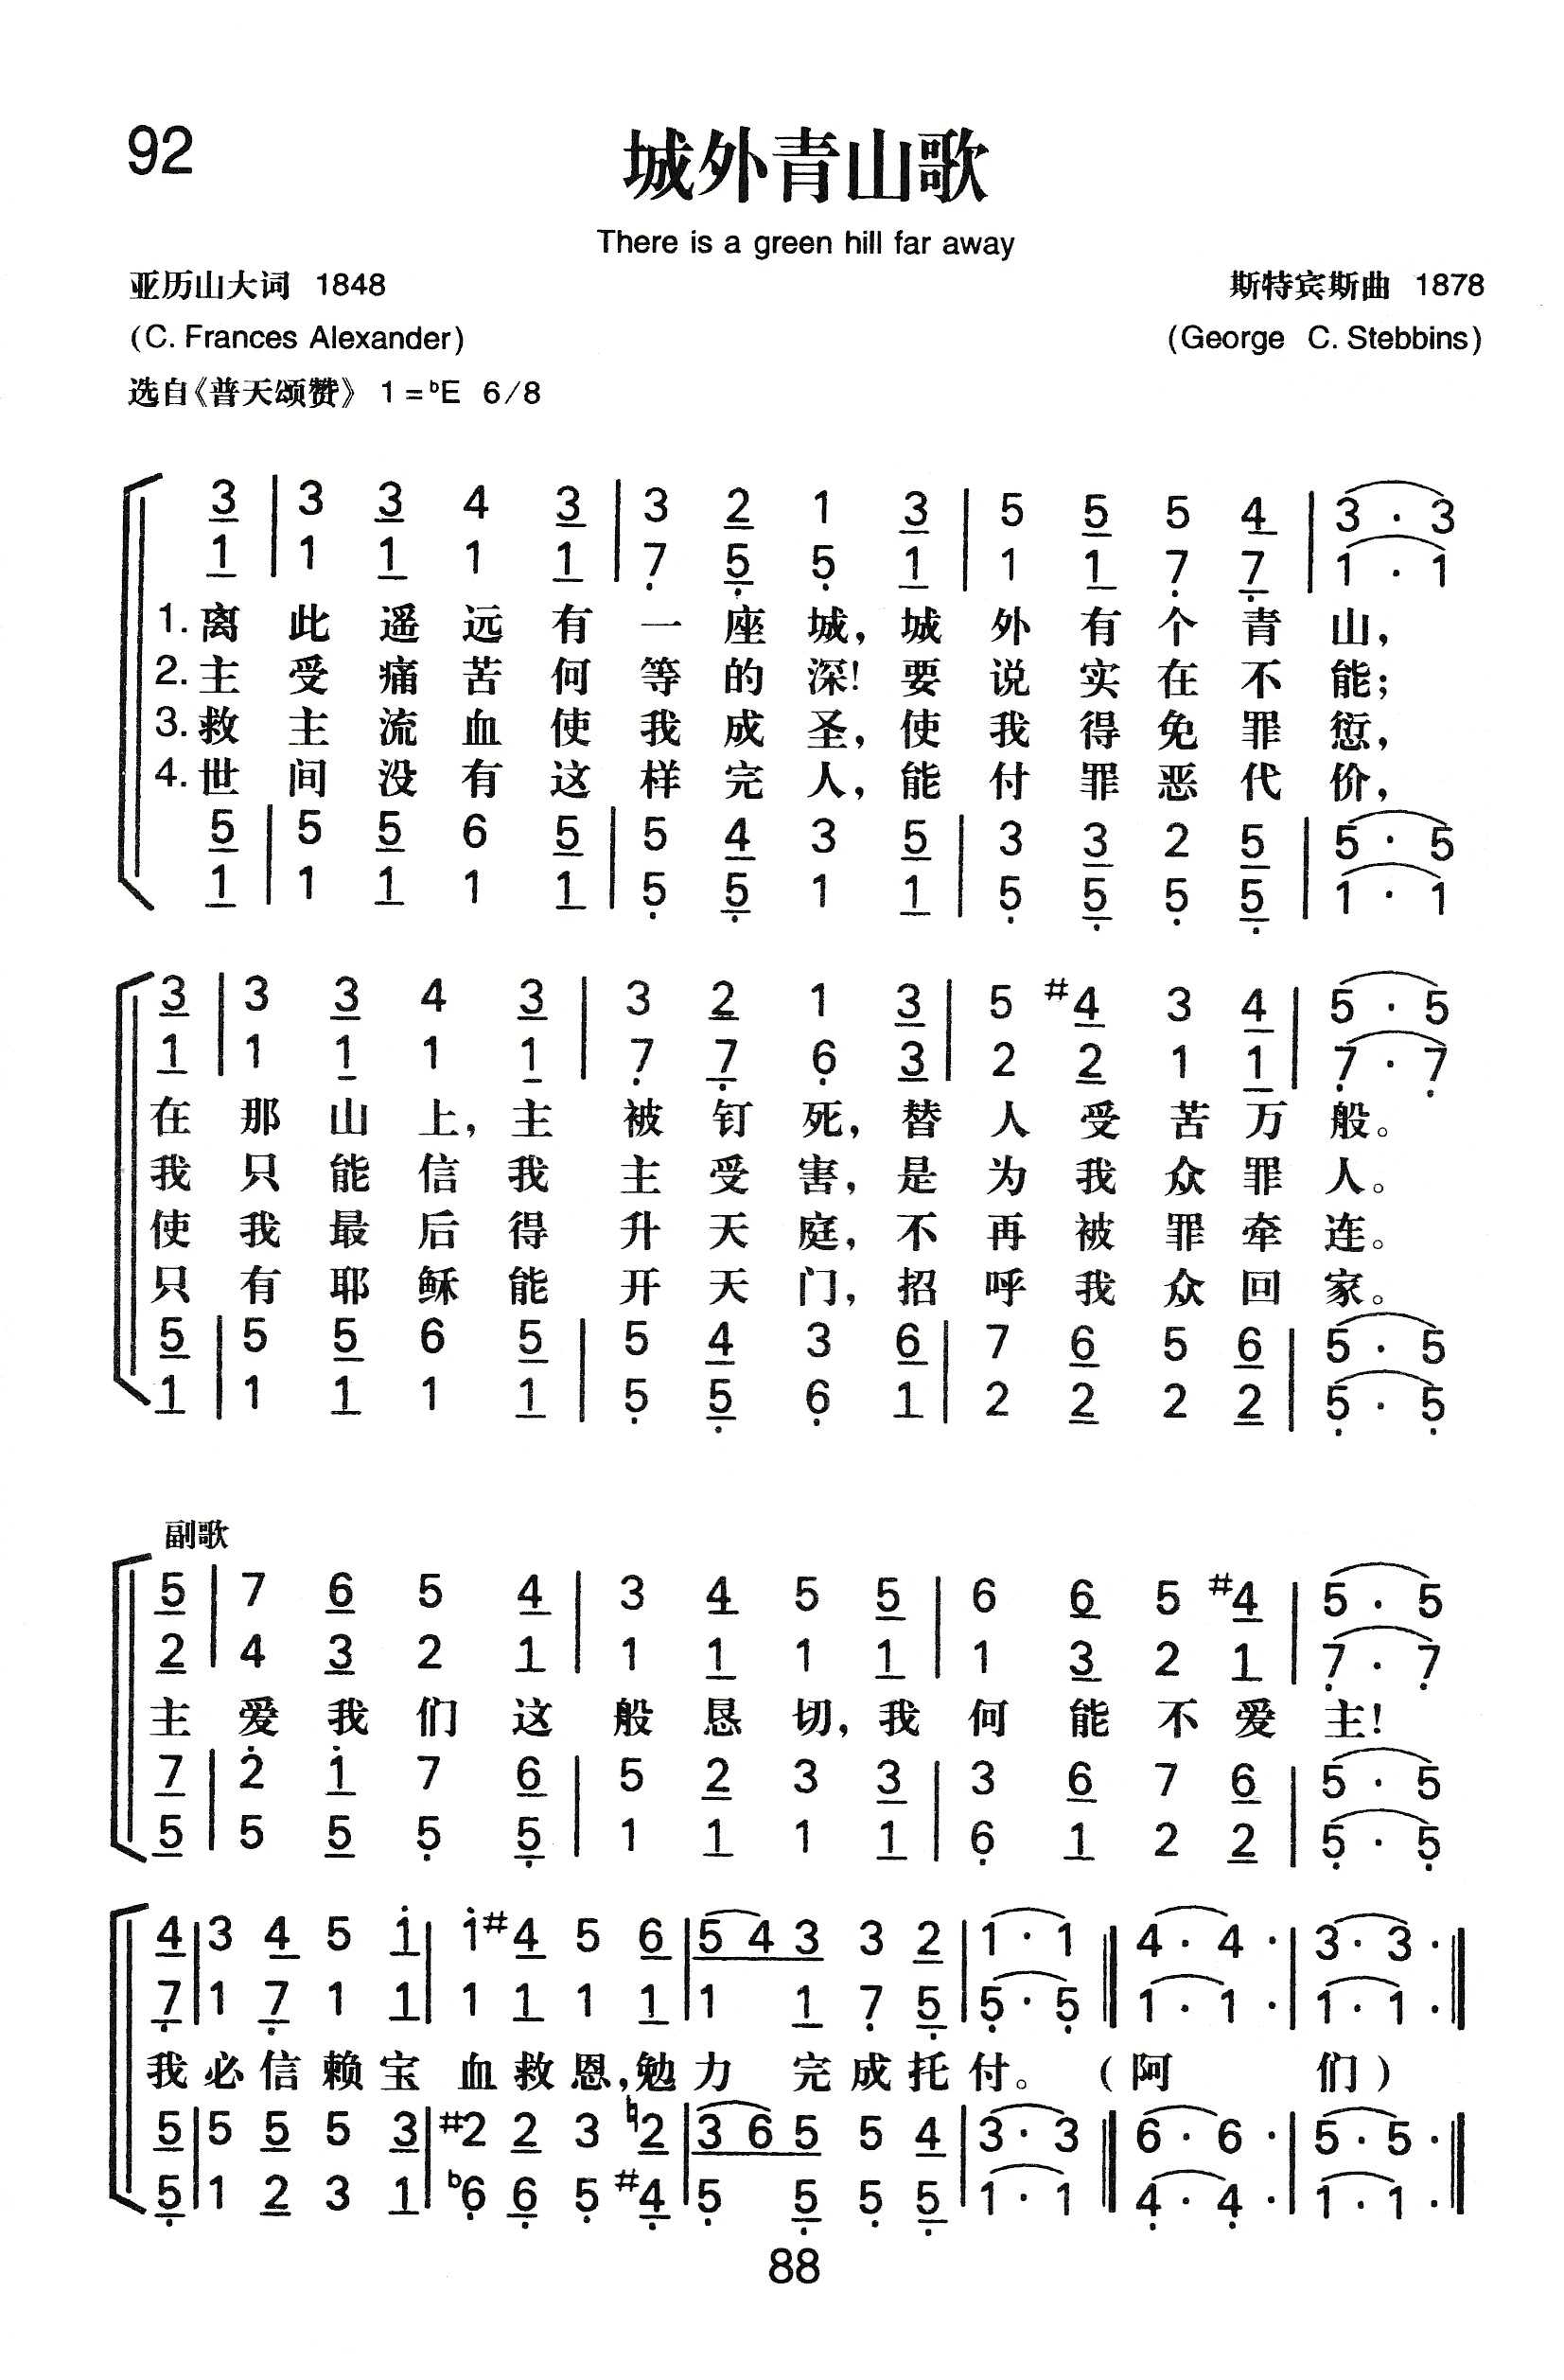 92
城外青山歌
There is a green hill far away
亚历山大词 1848
斯特宾斯曲 1878
(C. Frances Alexander)
(George C. Stebbins)
选自《普天颂赞》 1=ᵇE 6/8
3 | 3 3 4 3 | 3 2 1 3 | 5 5 5 4 | 3 · 3
1 | 1 1 1 1 | 7 5 5 1 | 1 1 7 7 | 1 · 1
1. 离此遥远有一座城，城外有个青山，
2. 主受痛苦何等的深！要说实在不能；
3. 救主流血使我成圣，使我得免罪愆，
4. 世间没有这样完人，能付罪恶代价，
5 | 5 5 6 5 | 5 4 3 5 | 3 3 2 5 | 5 · 5
1 | 1 1 1 1 | 5 5 1 1 | 5 5 5 5 | 1 · 1
3 | 3 3 4 3 | 3 2 1 3 | 5 #4 3 4 | 5 · 5
1 | 1 1 1 1 | 7 7 6 3 | 2 2 1 1 | 7 · 7
在那山上，主被钉死，替人受苦万般。
我只能信我主受害，是为我众罪人。
使我最后得升天庭，不再被罪牵连。
只有耶稣能开天门，招呼我众回家。
5 | 5 5 6 5 | 5 4 3 6 | 7 6 5 6 | 5 · 5
1 | 1 1 1 1 | 5 5 6 1 | 2 2 2 2 | 5 · 5
副歌
5 | 7 6 5 4 | 3 4 5 5 | 6 6 5 #4 | 5 · 5
2 | 4 3 2 1 | 1 1 1 1 | 1 3 2 1 | 7 · 7
主爱我们这般恳切，我何能不爱主！
7 | 2 1 7 6 | 5 2 3 3 | 3 6 7 6 | 5 · 5
5 | 5 5 5 5 | 1 1 1 1 | 6 1 2 2 | 5 · 5
4 | 3 4 5 1 | 1 #4 5 6 | 5 4 3 3 2 | 1 · 1 || 4 · 4 · | 3 · 3 · ||
7 | 1 7 1 1 | 1 1 1 1 | 1 1 7 5 | 5 · 5 || 1 · 1 · | 1 · 1 · ||
我必信赖宝血救恩，勉力完成托付。（阿们）
5 | 5 5 5 3 | #2 2 3 ♮2 | 3 6 5 5 4 | 3 · 3 || 6 · 6 · | 5 · 5 · ||
5 | 1 2 3 1 | ᵇ6 6 5 #4 | 5 5 5 5 | 1 · 1 || 4 · 4 · | 1 · 1 · ||
88